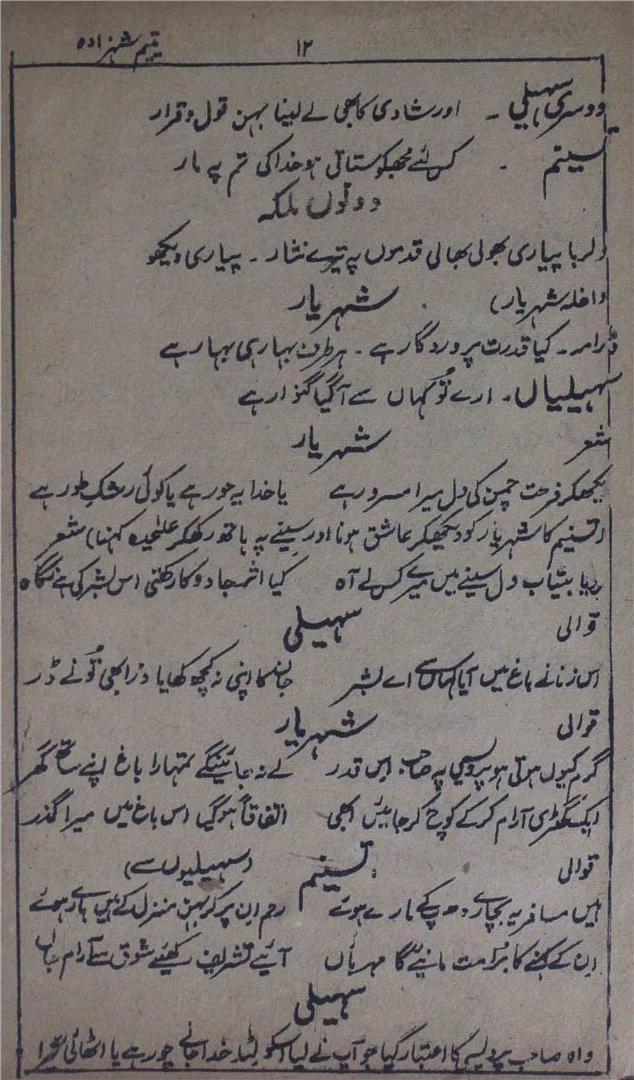 ۱۲ یتیم شہزادہ
دوسری سہیلی ۔ اور شادی کا بھی لے لینا بہن قول و قرار
تسنیم ۔ کس لئے مجھکو ستاتی ہو خدا کی تم پہ مار
دونوں ملکہ
دلربا پیاری بھولی بھالی قدموں پہ تیرے نثار ۔ پیاری دیکھو
داخلہ شہریار) شہریار
ڈرامہ ۔ کیا قدرت پروردگار ہے ۔ ہر طرف بہار ہی بہار ہے
سہیلیاں ۔ ارے تُو کہاں سے آگیا گنوار ہے
شعر شہریار
دیکھکر فرحت چمن کی دل میرا مسرور ہے یا خدا یہ حور ہے یا کوئی رشکِ طور ہے
(تسنیم کا شہریار کو دیکھکر عاشق ہونا اور سینے پہ ہاتھ رکھکر علیحدہ کہنا) شعر
بیتاب دل سینے میں میرے کس لے آہ کیا اثر جادو کا رکھتی اس بشر کی ہے نگاہ
قوالی سہیلی
اس زنانے باغ میں آیا کہاں سے اے بشر جان کا اپنی نہ کچھ کھایا ذرا بھی تُو نے ڈر
قوالی شہریار
گرم کیوں ہوتی ہو پردیسی پہ صاحب اس قدر لے نہ جائینگے تمہارا باغ اپنے ساتھ گھر
ایک گھڑی آرام کر کے کوچ کر جائیں ابھی اتفاقاً ہو گیا اس باغ میں میرا گذر
قوالی تسنیم (سہیلیوں سے)
ہیں مسافر یہ بچارے دھوپ کے مارے ہوئے رحم ان پر کر بہن منزل کے ہیں ہارے ہوئے
ان کے کہنے کا بُرا مت مانیے گا مہرباں آئیے تشریف رکھیے شوق سے آرام
سہیلی
واہ صاحب پردیسی کا اعتبار کیا جو آپ نے لیا اسکو خدا جانے چور ہے یا اٹھائی گیرا